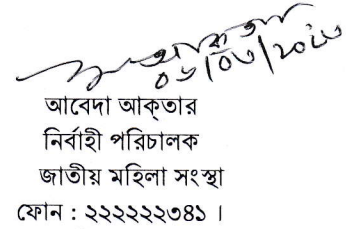 ০৬/০৩/২০২৩
আবেদা আক্‌তার
নির্বাহী পরিচালক
জাতীয় মহিলা সংস্থা
ফোন : ২২২২২২৩৪১ ।